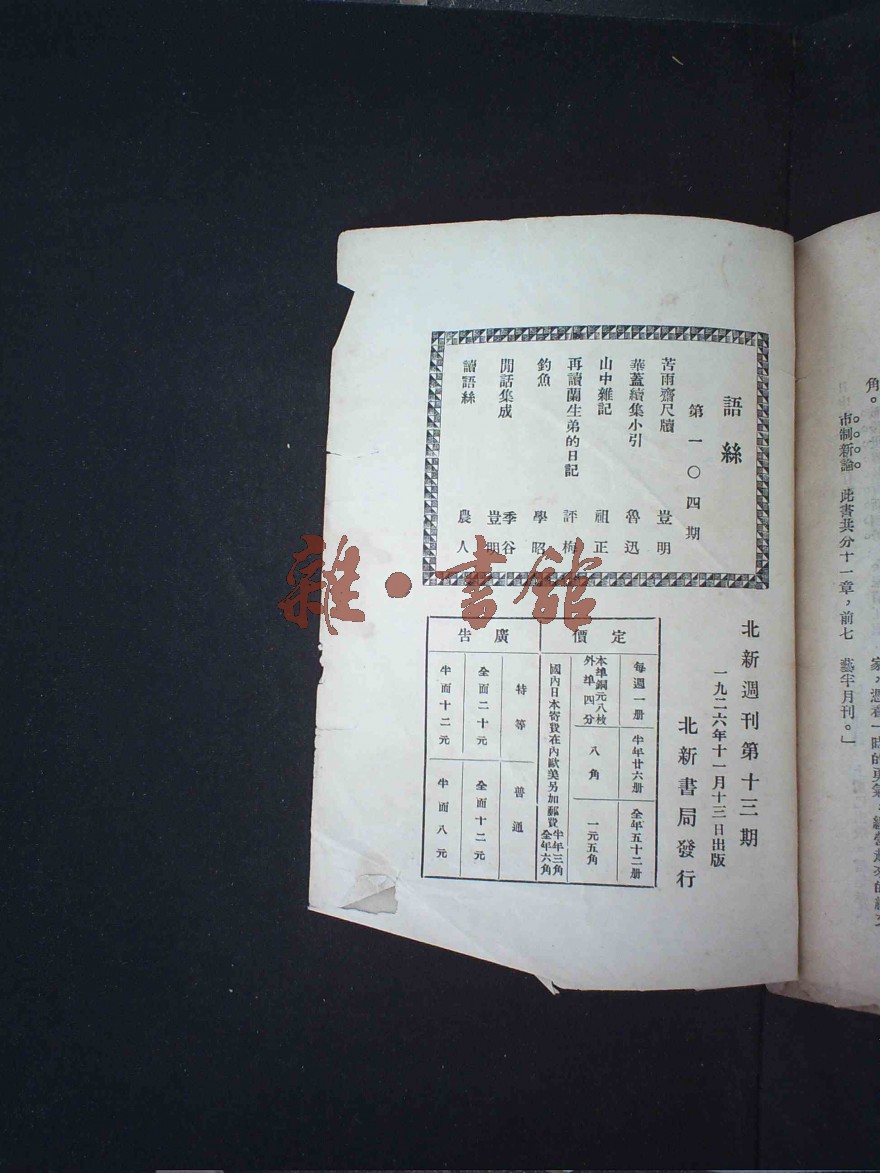 角。
市制新論　此書共分十一章，前七
藝半月刊。」
語絲
第一〇四期
苦雨齋尺牘　豈明
華蓋續集小引　魯迅
山中雜記　祖正
再讀蘭生弟的日記　評梅
釣魚　學昭
閒話集成　季谷　豈明
讀語絲　農人
雜・書館
北新週刊第十三期
一九二六年十一月十三日出版
北新書局發行
定價
每週一册
半年廿六册
全年五十二册
本埠銅元八枚
外埠四分
八角
一元五角
國內日本寄費在內歐美另加郵費半年三角全年六角
廣告
特等
普通
全面二十元
全面十二元
半面十二元
半面八元